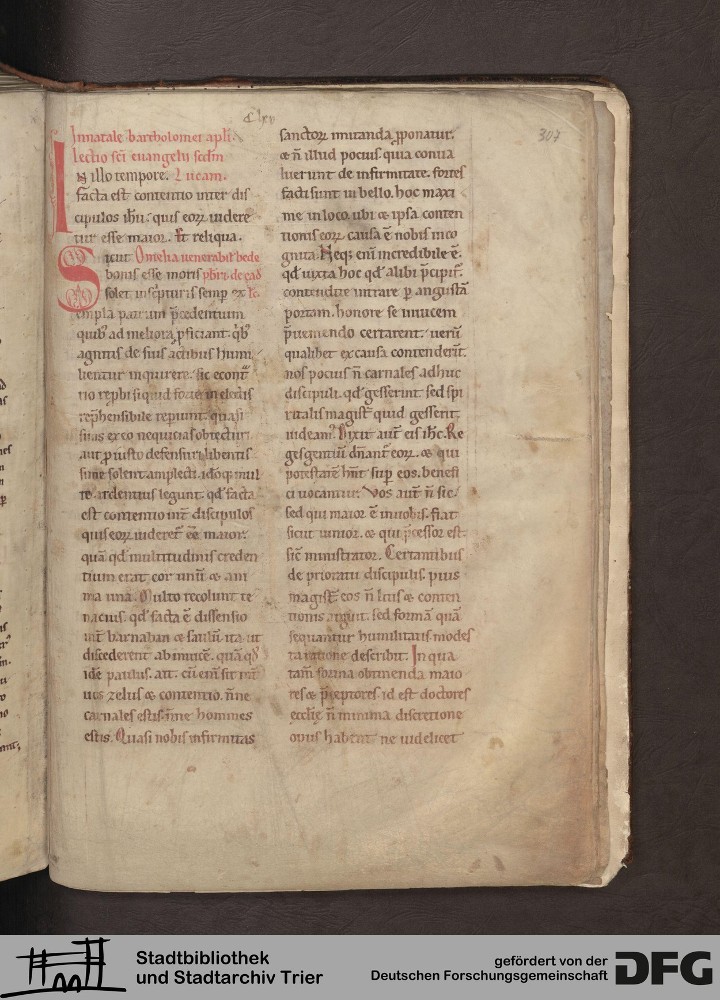 Clxv
307
In natale bartholomei apli.
Lectio sci euangelii scdm
IN illo tempore. Lucam.
facta est contentio inter dis
cipulos ihu. quis eorꝝ uidere
tur esse maior. Et reliqua.
Sicut Omelia uenerabil' bede
bonis esse moris pbri. de ead
solet in scripturis semp ex lc.
empla patrum p̄cedentium
quib; ad meliora p̄ficiant. qꝫ
agnitis de suis actibus humi
lientur inquirere. sic econt͛
rio repbi si quid forte in electis
rep̄hensibile rep̄iunt. quasi
suas ex eo nequicias obtecturi
aut p iusto defensuri libentis
sime solent amplecti. idoq; mul
to ardentius legunt. qd facta
est contentio int̄ discipulos
quis eorꝝ uideret̄ ee maior.
quā qd multitudinis creden
tium erat cor unū & ani
ma una. Multo recolunt te
nacius. qd facta ē dissensio
int̄ barnaban & saulū. ita ut
discederent ab inuicē. quā qd
idē paulus. ait. Cū enī sit int̄
uos zelus & contentio. n̄ne
carnales estis. n̄ne homines
estis. Quasi nobis infirmitas
sanctorꝝ imitanda p̄ponatur.
& n̄ illud pocius quia conua
luerunt de infirmitate. fortes
facti sunt in bello. hoc maxi
me in loco. ubi & ipsa conten
tionis eorꝝ causa ē nobis inco
gnita. Neq; enī incredibile ē.
qd iuxta hoc qd alibi p̄cipit͛.
contendite intrare p angustā
portam. honore se inuicem
p̄ueniendo certarent. uerū
qualibet ex causa contenderit.
nos pocius n̄ carnales adhuc
discipuli. qd gesserint sed spi
ritalis magist͛ quid gesserit
uideam͛. Dixit aut̄ eis ihc. Re
ges gentiū dn̄ant͛ eorꝝ. & qui
potestatē hn̄t sup eos. benefi
ci uocantur. Vos aut̄ n̄ sic.
sed qui maior ē in uobis. fiat
sicut iunior. & qui p̄cessor est.
sic̄ ministrator. Certantibus
de prioratu discipulis. pius
magist͛ eos n̄ litis & conten
tionis arguit. sed formā quā
sequantur humilitatis modes
ta ratione describit. In qua
tam̄ forma obtinenda maio
res & p̄ceptores. id est doctores
ecclię n̄ minima discretione
opus habent ne uidelicet
Stadtbibliothek
und Stadtarchiv Trier
gefördert von der
Deutschen Forschungsgemeinschaft
DFG